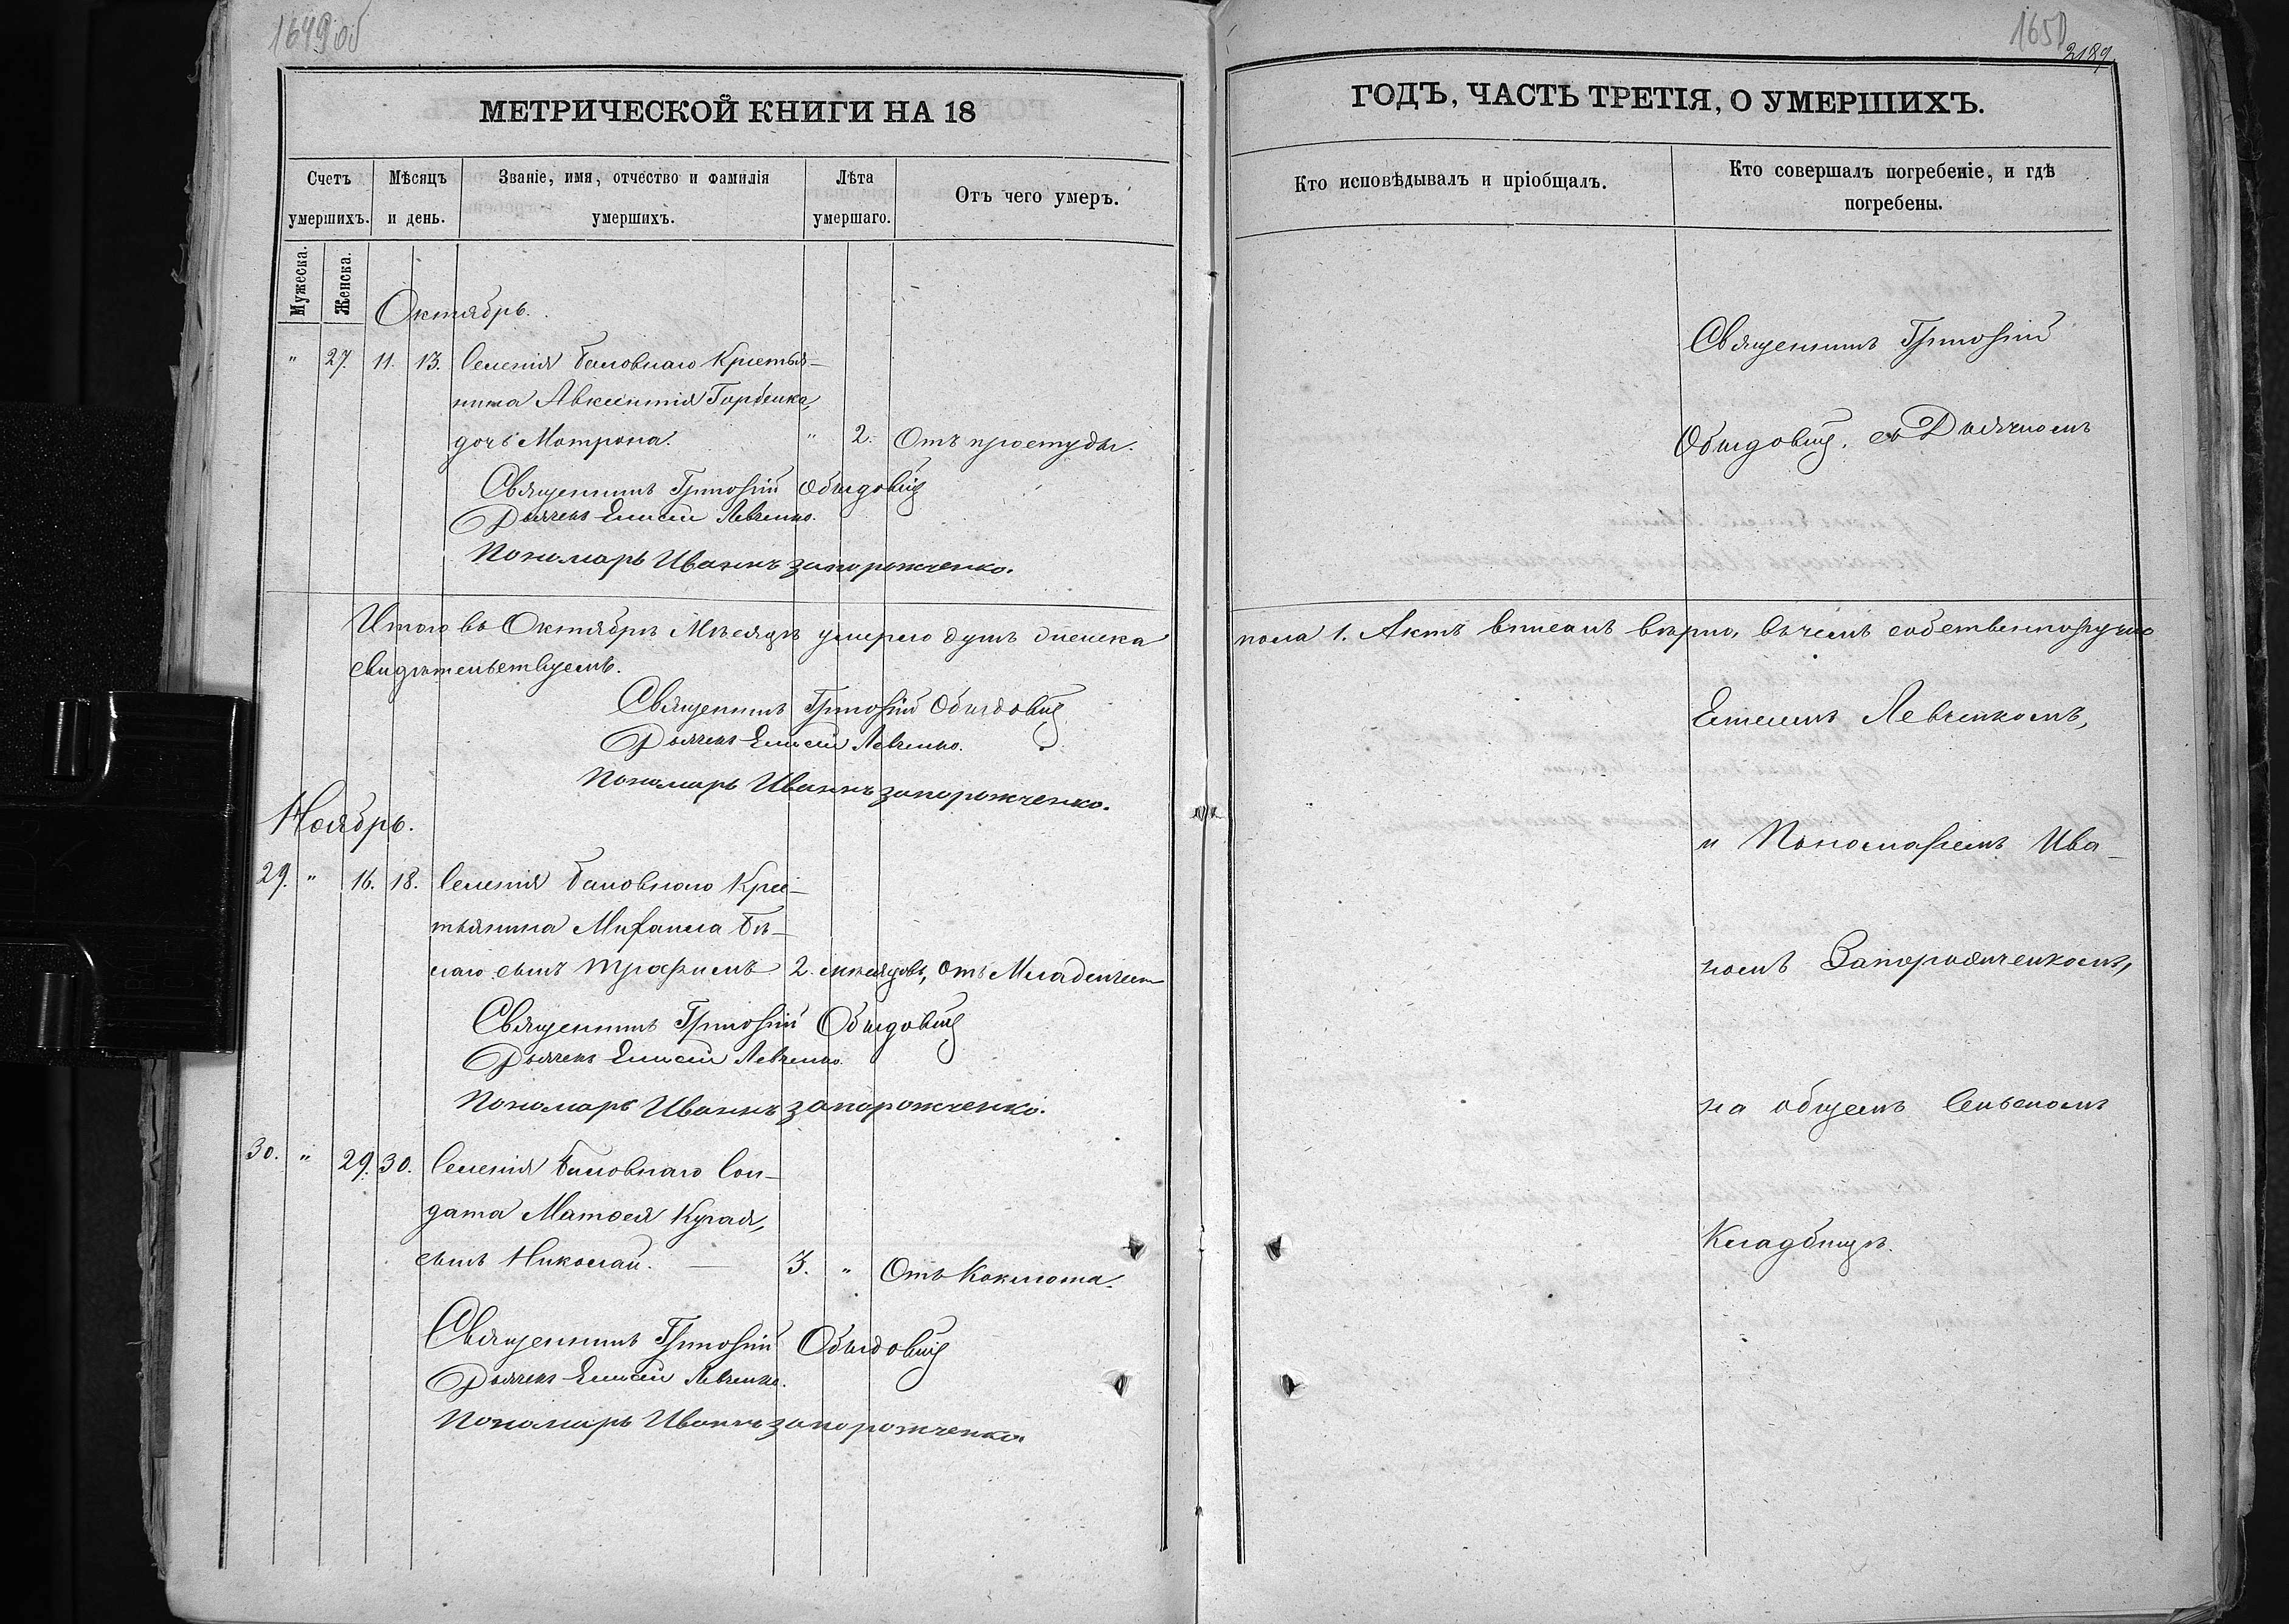 1649об
МЕТРИЧЕСКОЙ КНИГИ НА 18
Счетъ умершихъ.
Мѣсяцъ и день.
Званіе, имя, отчество и фамилія умершихъ.
Лѣта умершаго.
Отъ чего умеръ.
Мужеска.
Женска.
Октябрь.
" 27. 11. 13. Селенія Баловнаго Крестья-
нина Авксентія Горбенка,
дочь Матрона. " 2. Отъ простуды.
Священникъ Григорій Обыдовскій
Дьячекъ Елисей Левченко.
Пономарь Иваннъ запорожченко.
Итого въ Октябрѣ Мѣсяцѣ умерло душъ женска
свидѣтельствуемъ.
Священникъ Григорій Обыдовскій
Дьячекъ Елисей Левченко.
Пономарь Иваннъ запорожченко.
Ноябрь.
29. " 16. 18. Селенія Баловнаго Крес-
тьянина Михаила Бѣ-
лаго сынъ Трофимъ 2. мѣсяцовъ, Отъ Младенчест
Священникъ Григорій Обыдовскій
Дьячекъ Елисей Левченко.
Пономарь Иваннъ запорожченко.
30. " 29. 30. Селенія Баловнаго Сол-
дата Матѳея Кугая,
сынъ Николай. — 3. " Отъ Коклюша.
Священникъ Григорій Обыдовскій
Дьячекъ Елисей Левченко.
Пономарь Иваннъ запорожченко
1650
2189
ГОДЪ, ЧАСТЬ ТРЕТІЯ, О УМЕРШИХЪ.
Кто исповѣдывалъ и пріобщалъ.
Кто совершалъ погребеніе, и гдѣ погребены.
Священникъ Григорій
Обыдовскій. съ Дьячкомъ
пола 1. Актъ вписанъ вѣрно, въ чемъ собственноручно
Елисеемъ Левченкомъ,
и Пономаремъ Ива-
номъ Запорожченкомъ,
на общемъ Сельскомъ
Кладбищѣ.